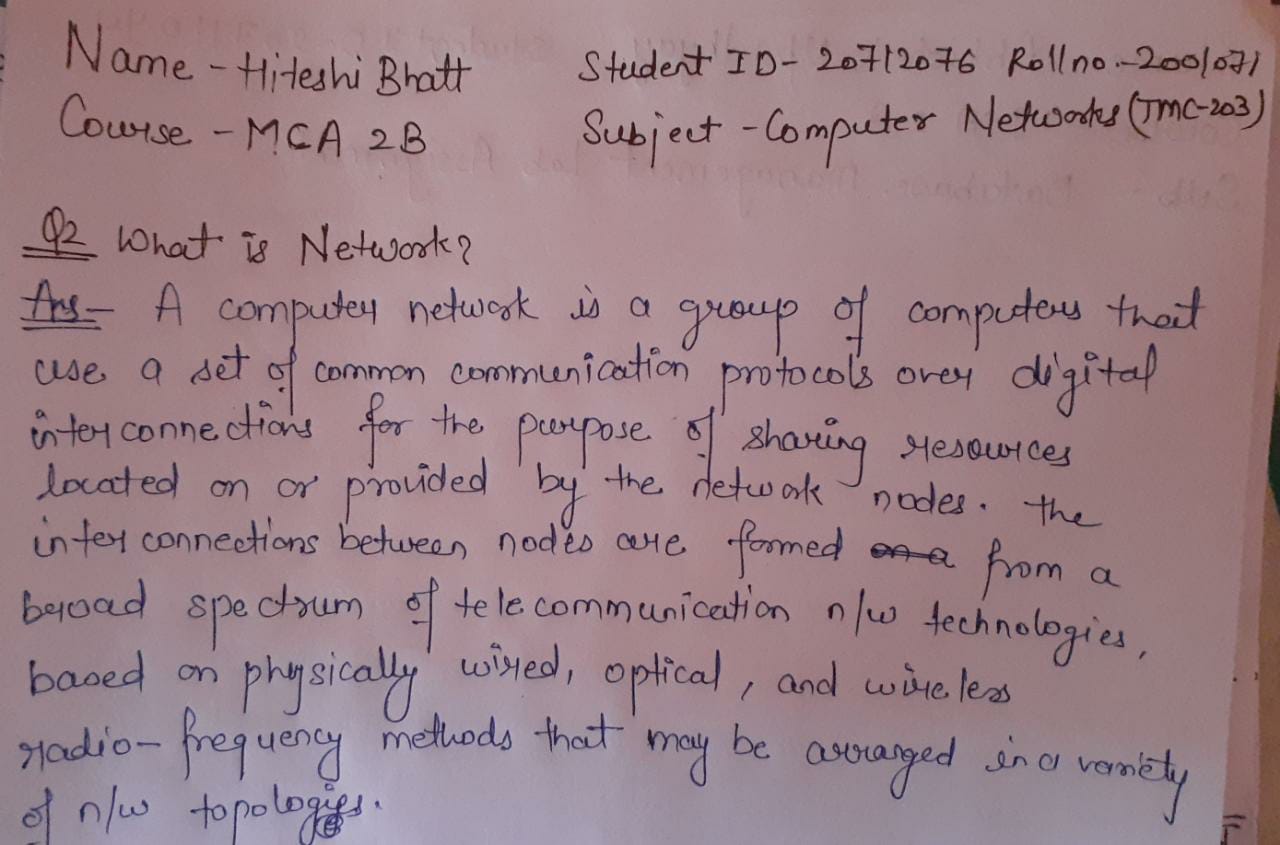 Name - Hiteshi Bhatt Student ID - 20712076 Roll no. - 2001071
Course - MCA 2B Subject - Computer Networks (TMC-203)
Q2 What is Network?
Ans - A computer network is a group of computers that
use a set of common communication protocols over digital
interconnections for the purpose of sharing resources
located on or provided by the network nodes. The
interconnections between nodes are formed from a
broad spectrum of telecommunication n/w technologies,
based on physically wired, optical, and wireless
radio-frequency methods that may be arranged in a variety
of n/w topologies.